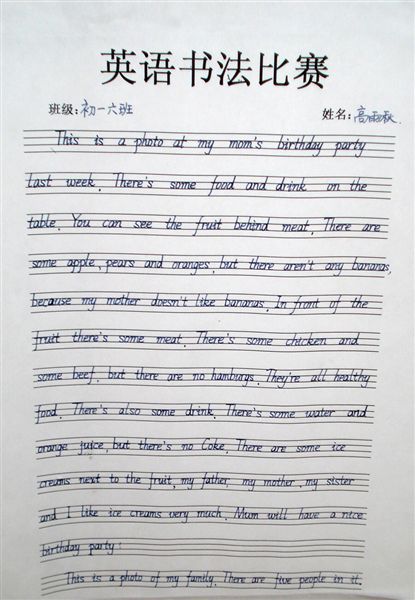 英语书法比赛
班级:初一六班 姓名:高雨秋
This is a photo at my mom's birthday party
last week. There's some food and drink on the
table. You can see the fruit behind meat. There are
some apple, pears and oranges, but there aren't any bananas,
because my mother doesn't like bananas. In front of the
fruit there's some meat. There's some chicken and
some beef. but there are no hamburgs. They're all healthy
food. There's also some drink. There's some water and
orange juice, but there's no Coke. There are some ice
creams next to the fruit, my father, my mother, my sister
and I like ice creams very much. Mum will have a nice
birthday party!
This is a photo of my family. There are five people in it.